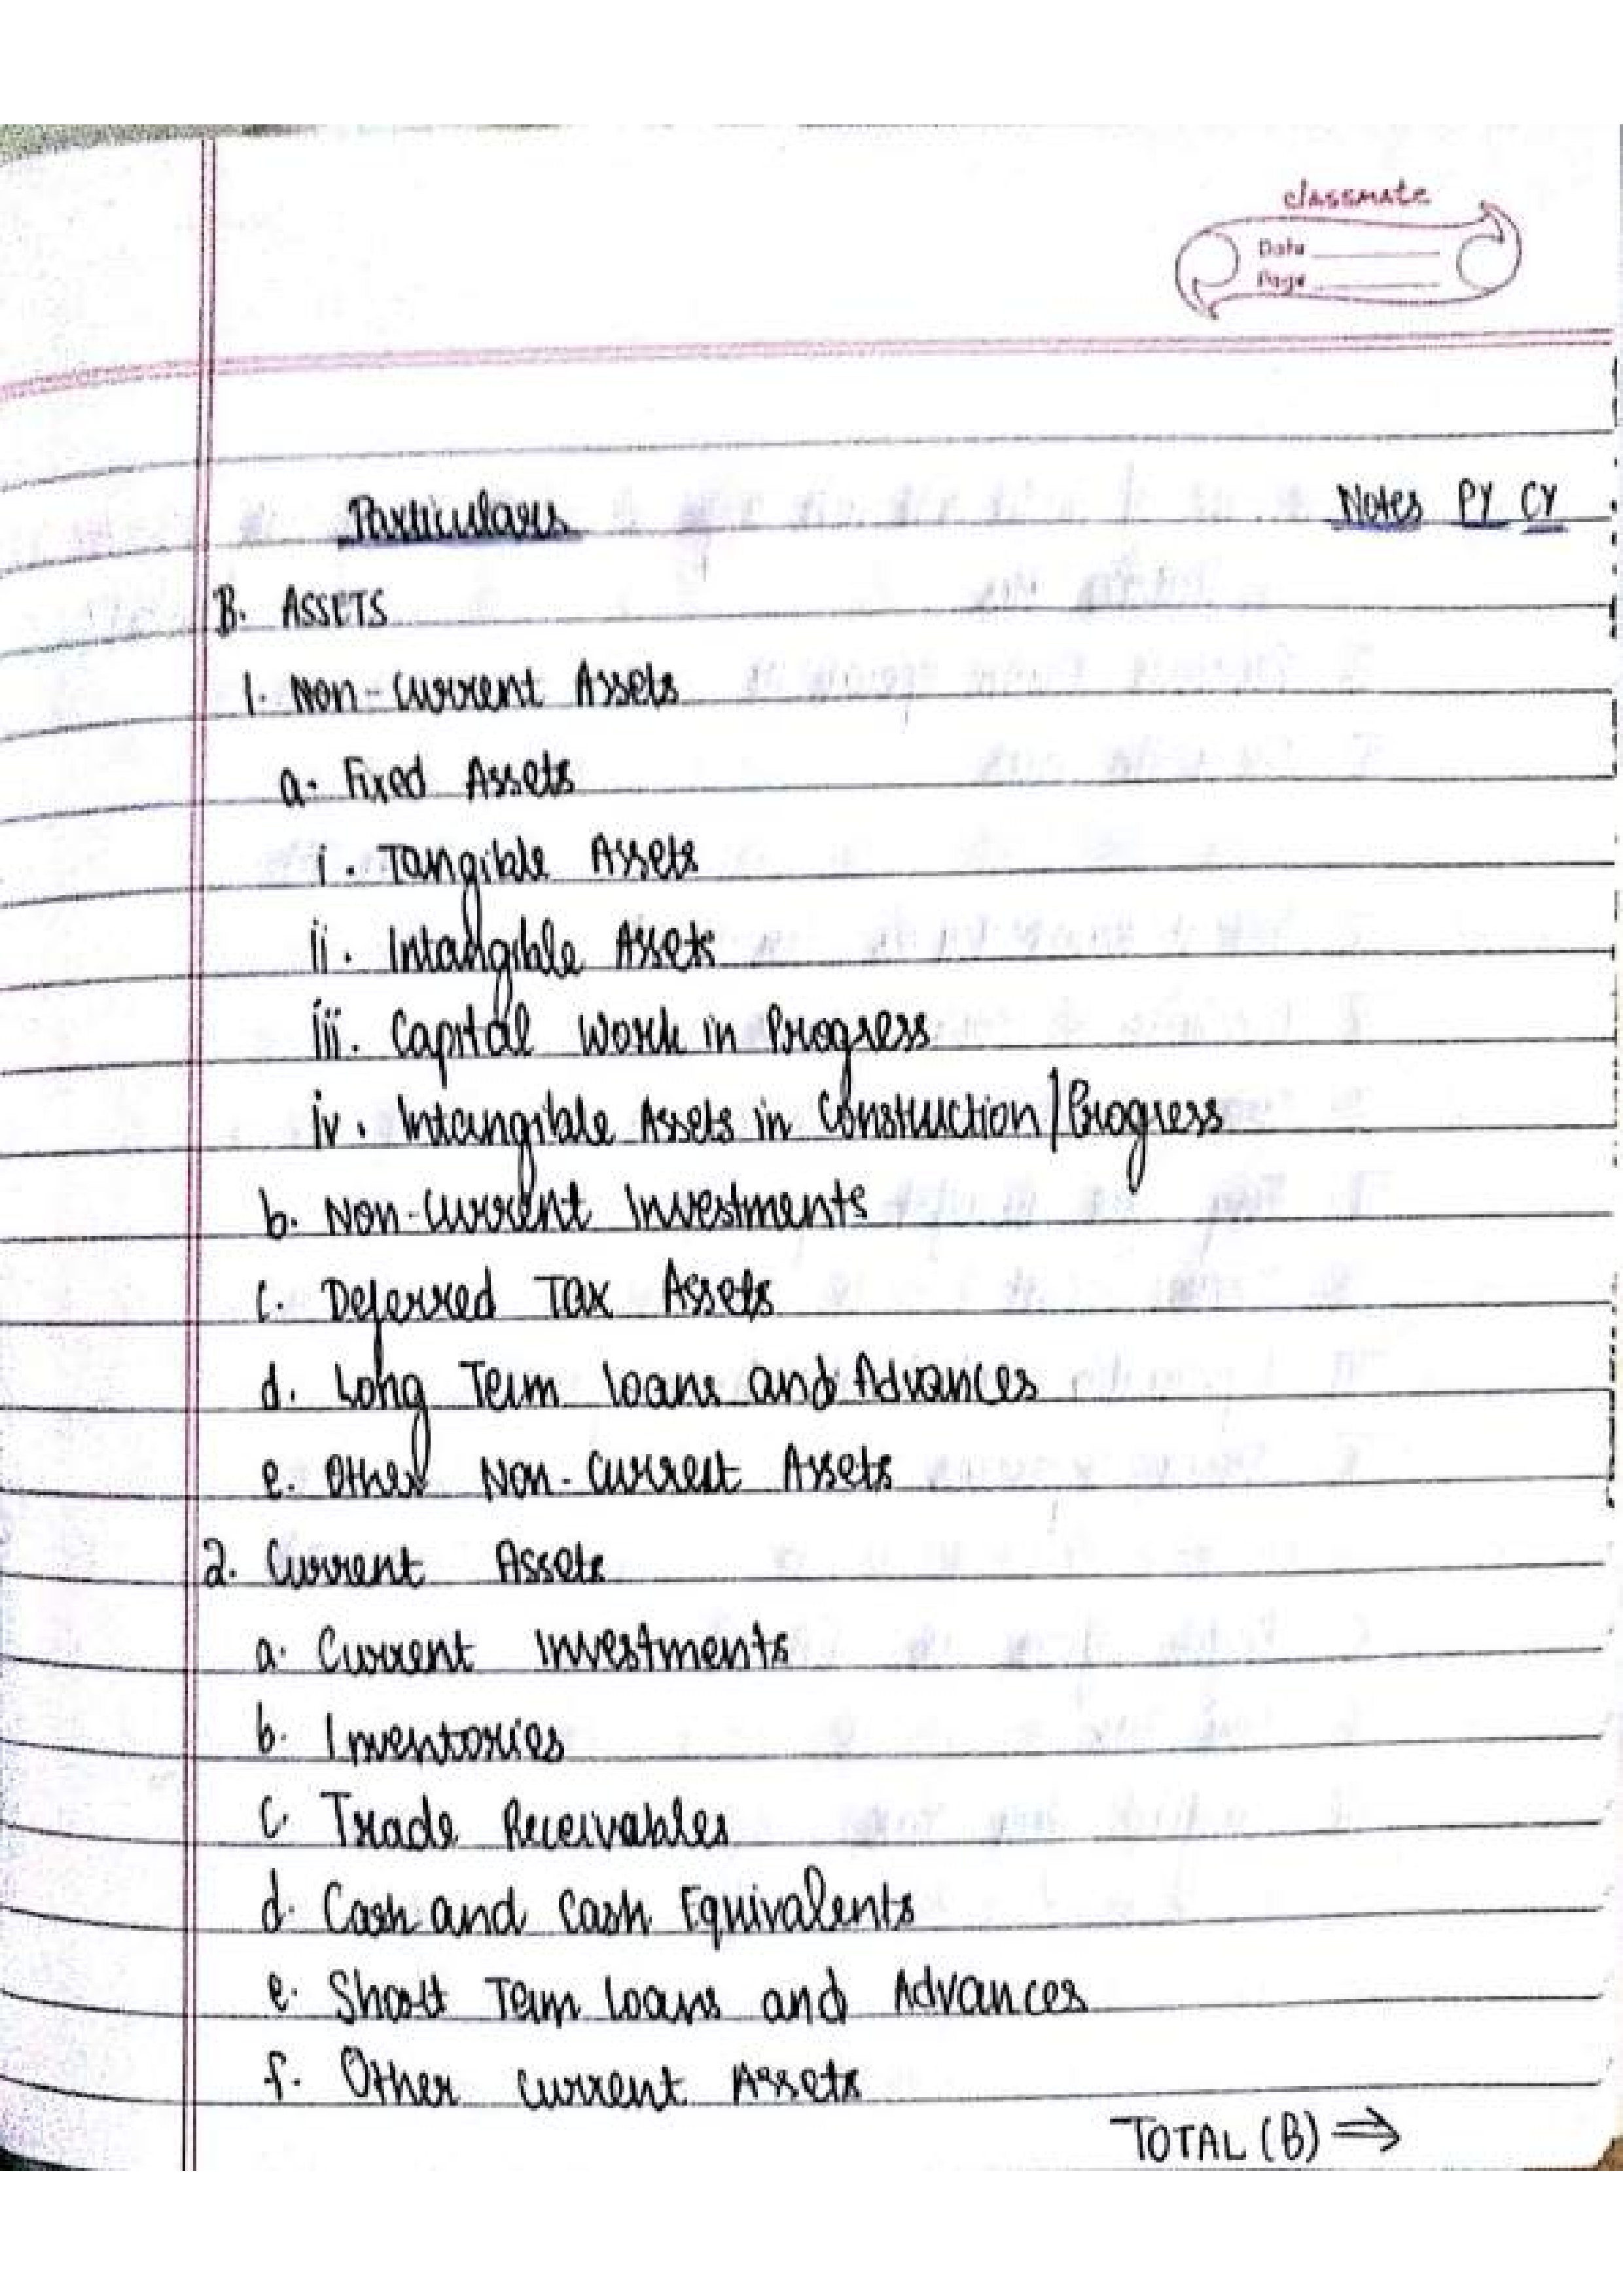 classmate
Date
Page
Particulars Notes PY CY
B. ASSETS
1. Non-Current Assets
a. Fixed Assets
i. Tangible Assets
ii. Intangible Assets
iii. Capital Work in Progress
iv. Intangible Assets in Construction/Progress
b. Non-Current Investments
c. Deferred Tax Assets
d. Long Term loans and Advances
e. Other Non-Current Assets
2. Current Assets
a. Current Investments
b. Inventories
c. Trade Receivables
d. Cash and Cash Equivalents
e. Short Term loans and Advances
f. Other Current Assets
TOTAL (B) ⇒